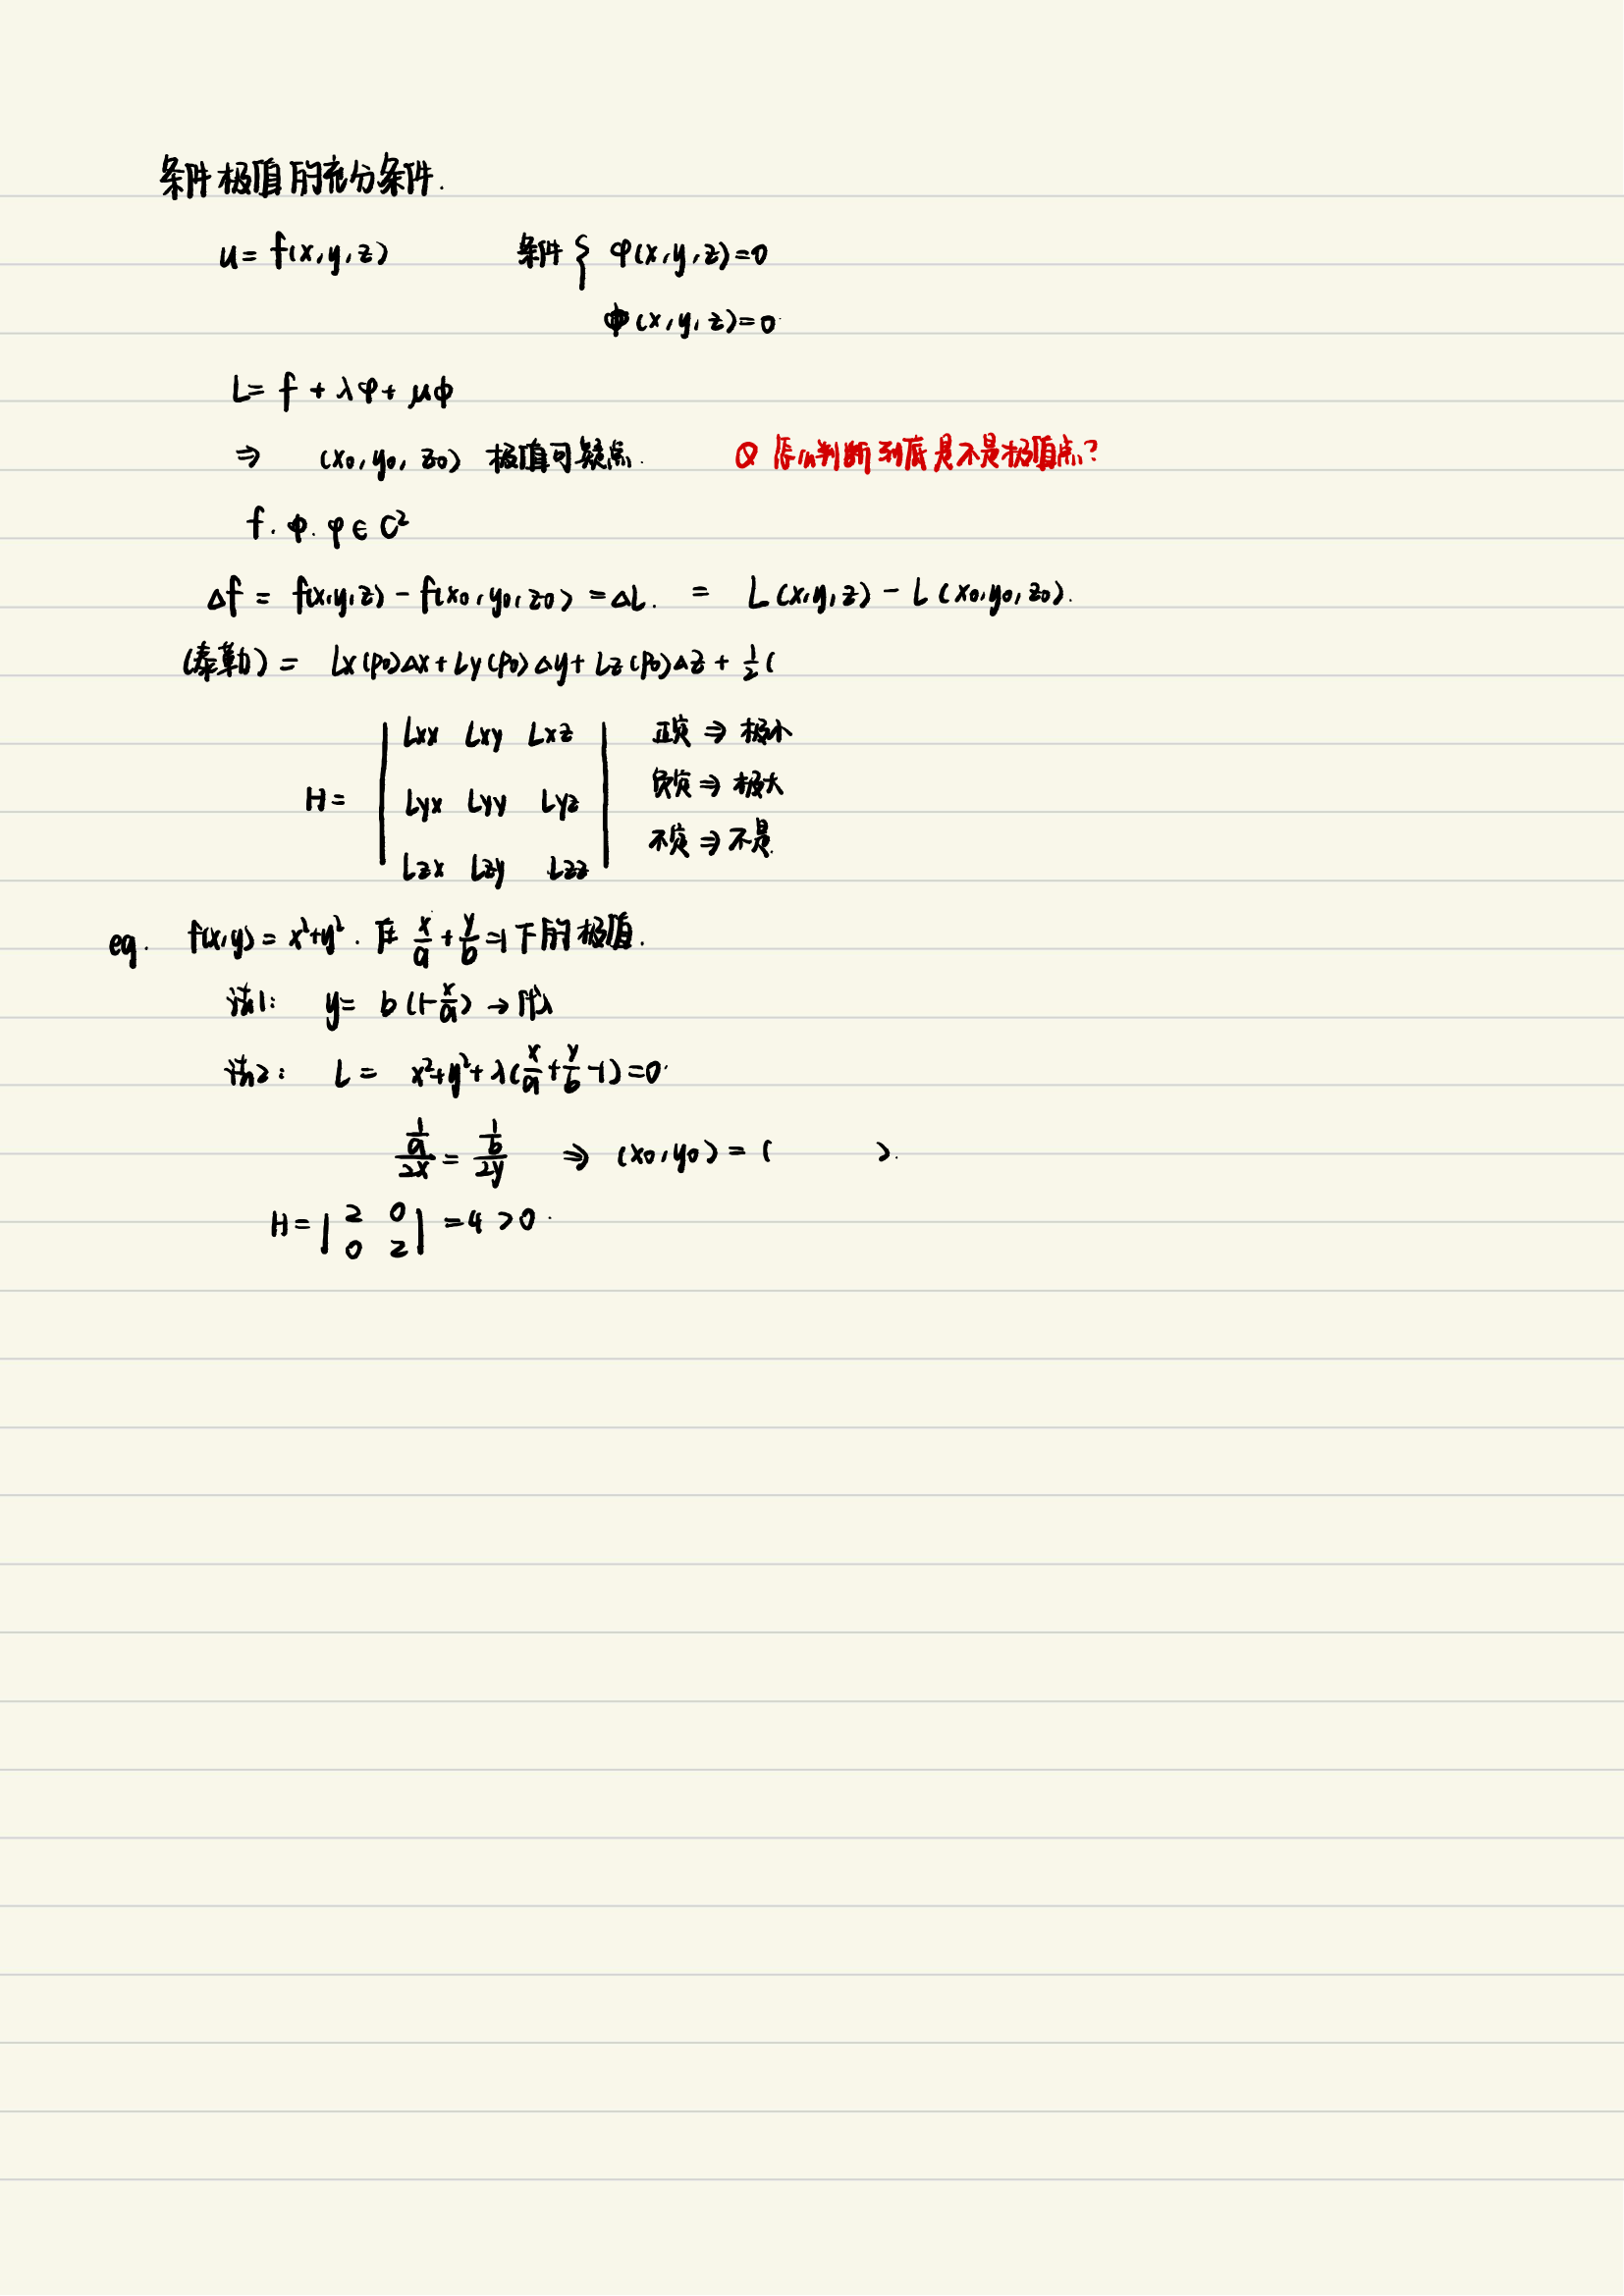 条件极值的充分条件.
u= f(x,y,z) 条件 { φ(x,y,z)=0
ϕ(x,y,z)=0
L= f + λφ+ μϕ
⇒ (x0,y0,z0) 极值可疑点. Q 怎么判断到底是不是极值点?
f. ϕ. φ ∈ C²
Δf = f(x,y,z) - f(x0,y0,z0) = ΔL. = L(x,y,z) - L(x0,y0,z0).
(泰勒) = Lx(P0)Δx + Ly(P0)Δy + Lz(P0)Δz + 1/2 (
H = | Lxx Lxy Lxz | 正定 ⇒ 极小
| Lyx Lyy Lyz | 负定 ⇒ 极大
| Lzx Lzy Lzz | 不定 ⇒ 不是.
eg. f(x,y) = x²+y². 在 x/a + y/b =1 下的极值.
法1: y= b(1-x/a) → 代入
法2: L = x²+y²+ λ(x/a + y/b -1)=0.
(1/a)/2x = (1/b)/2y ⇒ (x0,y0) = ( ).
H= | 2 0 | =4 >0.
| 0 2 |